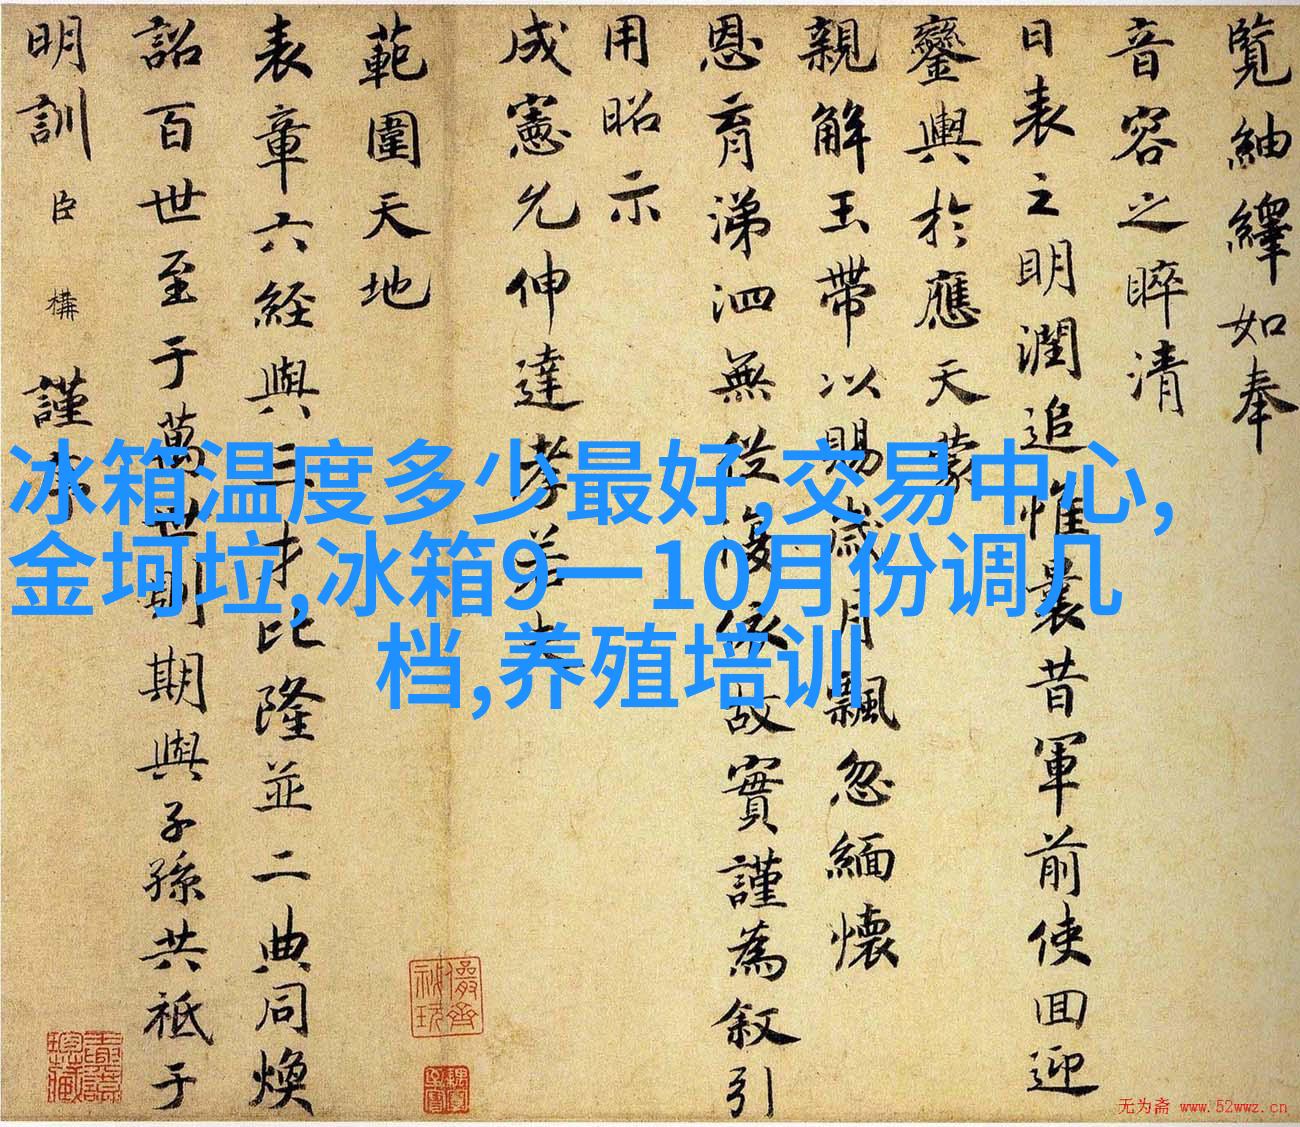 覽紬繹如奉
音容之睟清
日表之明潤追惟曩昔軍前使回迎
鑾輿於應天蒙
親解玉帶以賜歲月飄忽緬懷
恩育涕泗無從復依故實謹為叙引
用昭示
成憲允伸達孝若夫
範圍天地
表章六經與三才比隆並二典同煥
詔百世至于萬世則期與子孫共祗于
明訓臣構謹
冰箱温度多少最好,交易中心,
金坷垃,冰箱9一10月份调几
档,养殖培训
无为斋 www.52wwz.cn